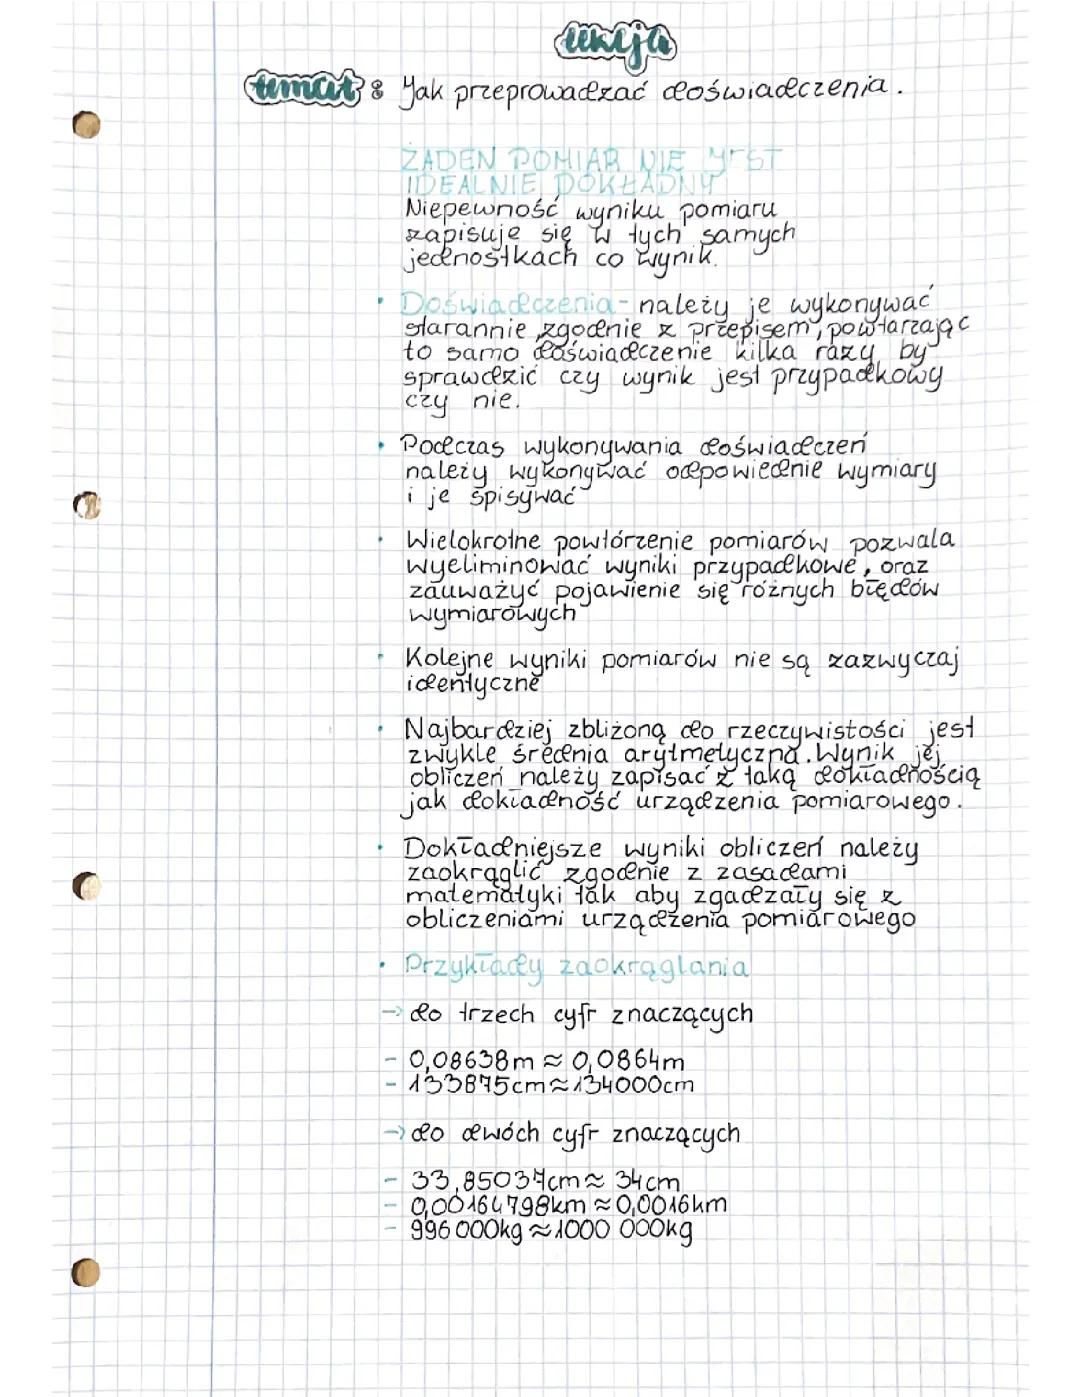 lekcja
temat: Jak przeprowadzać doświadczenia.
ŻADEN POMIAR NIE JEST
IDEALNIE DOKŁADNY
Niepewność wyniku pomiaru
zapisuje się w tych samych
jednostkach co wynik.
• Doświadczenia - należy je wykonywać
starannie, zgodnie z przepisem, powtarzając
to samo doświadczenie kilka razy, by
sprawdzić czy wynik jest przypadkowy
czy nie.
• Podczas wykonywania doświadczeń
należy wykonywać odpowiednie wymiary
i je spisywać
• Wielokrotne powtórzenie pomiarów pozwala
wyeliminować wyniki przypadkowe, oraz
zauważyć pojawienie się różnych błędów
wymiarowych
• Kolejne wyniki pomiarów nie są zazwyczaj
identyczne
• Najbardziej zbliżoną do rzeczywistości jest
zwykle średnia arytmetyczna. Wynik jej
obliczeń należy zapisać z taką dokładnością
jak dokładność urządzenia pomiarowego.
• Dokładniejsze wyniki obliczeń należy
zaokrąglić zgodnie z zasadami
matematyki tak aby zgadzały się z
obliczeniami urządzenia pomiarowego
• Przykłady zaokrąglania
→ do trzech cyfr znaczących
- 0,08638m ≈ 0,0864m
- 133875cm ≈ 134000cm
→ do dwóch cyfr znaczących
- 33,85037cm ≈ 34cm
- 0,00164798km ≈ 0,0016km
- 996 000kg ≈ 1000 000kg